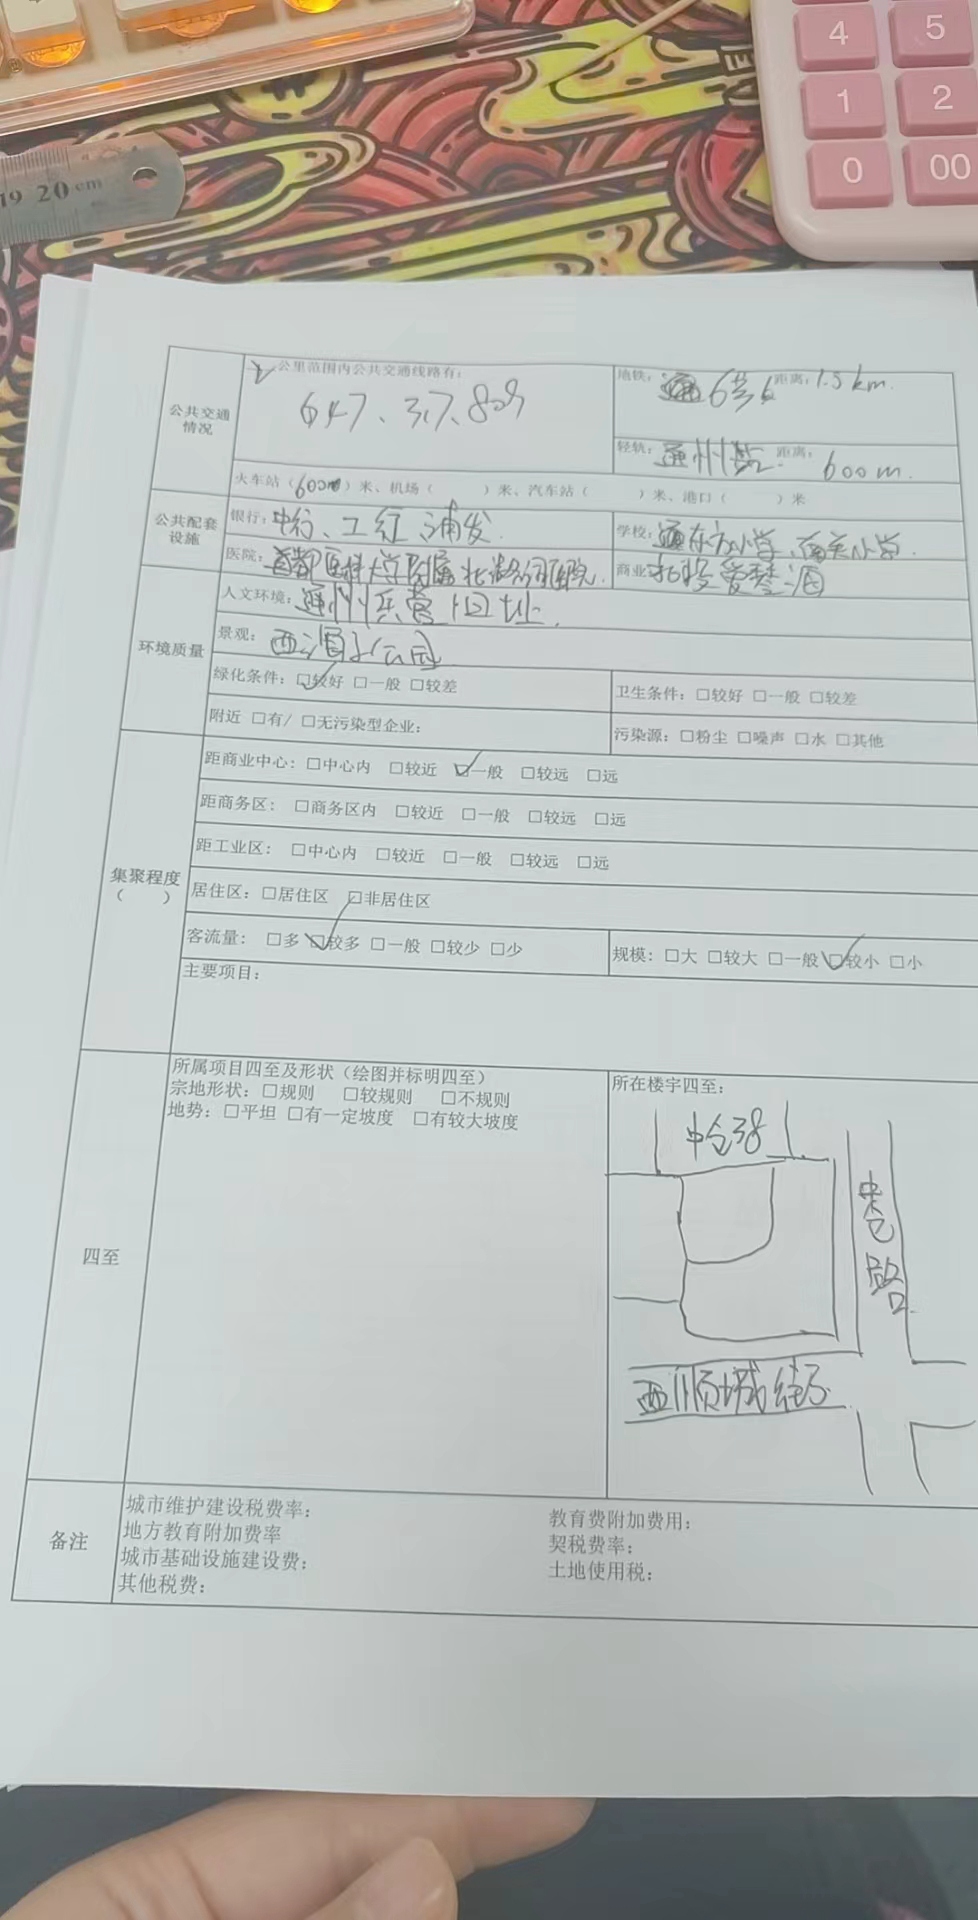 4 5
1 2
0 00
19 20 cm
公共交通情况
公里范围内公共交通线路有:
647、317、809
地铁: 6号 距离: 1.5km.
轻轨: 通州 距离: 600m.
火车站(600)米、机场( )米、汽车站( )米、港口( )米
公共配套设施
银行: 中行、工行、浦发
学校: 小学、南关小学.
医院: 首都医科大学附属北 医院.
商业:
环境质量
人文环境: 通州兵营旧址.
景观: 西海子公园
绿化条件: ☑较好 □一般 □较差
卫生条件: □较好 □一般 □较差
附近 □有/ □无污染型企业:
污染源: □粉尘 □噪声 □水 □其他
集聚程度
( )
距商业中心: □中心内 □较近 ☑一般 □较远 □远
距商务区: □商务区内 □较近 □一般 □较远 □远
距工业区: □中心内 □较近 □一般 □较远 □远
居住区: □居住区 □非居住区
客流量: □多 ☑较多 □一般 □较少 □少
规模: □大 □较大 □一般 ☑较小 □小
主要项目:
四至
所属项目四至及形状(绘图并标明四至)
宗地形状: □规则 □较规则 □不规则
地势: □平坦 □有一定坡度 □有较大坡度
所在楼宇四至:
中仓38
中仓路
西顺城街
备注
城市维护建设税费率:
教育费附加费用:
地方教育附加费率
契税费率:
城市基础设施建设费:
土地使用税:
其他税费: